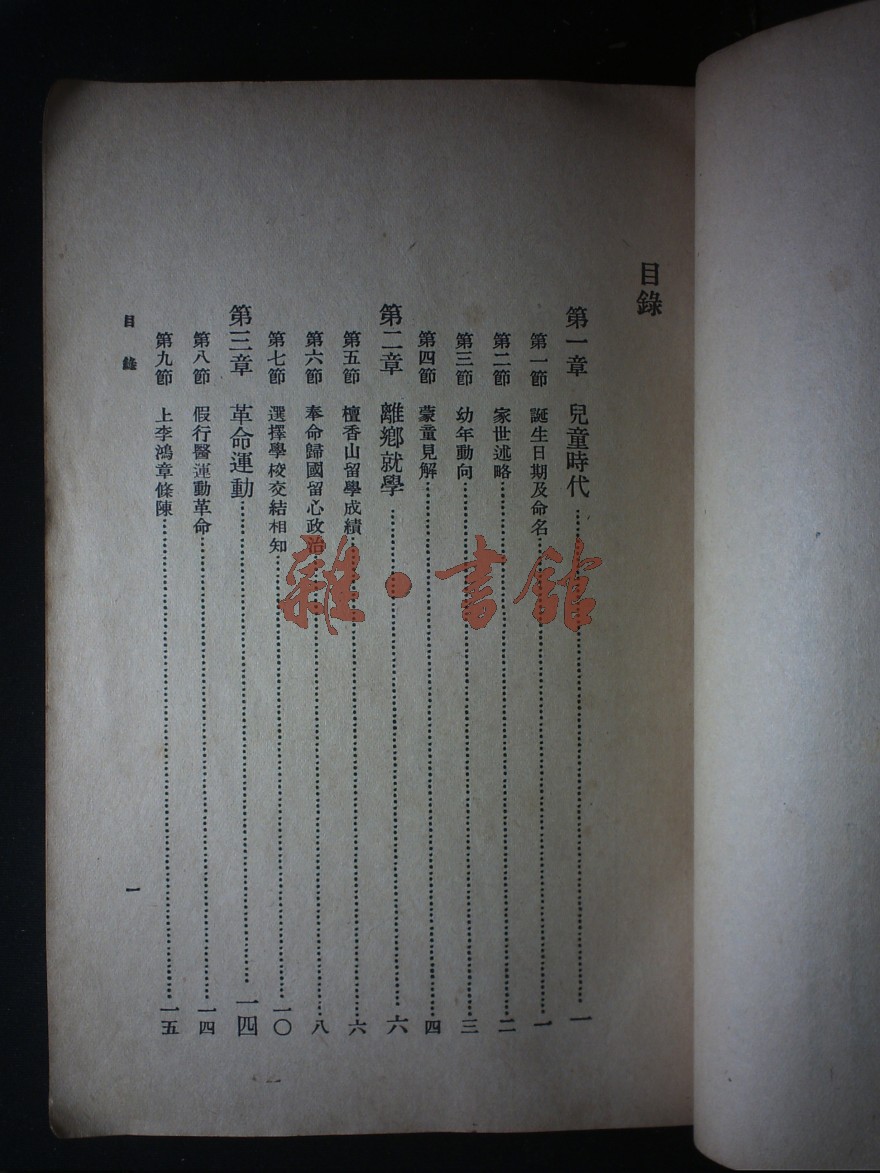 目錄
第一章 兒童時代……一
第一節 誕生日期及命名……一
第二節 家世述略……二
第三節 幼年動向……三
第四節 蒙童見解……四
第二章 離鄉就學……六
第五節 檀香山留學成績……六
第六節 奉命歸國留心政治……八
第七節 選擇學校交結相知……一〇
第三章 革命運動……一四
第八節 假行醫運動革命……一四
第九節 上李鴻章條陳……一五
目錄 一
雜·書館